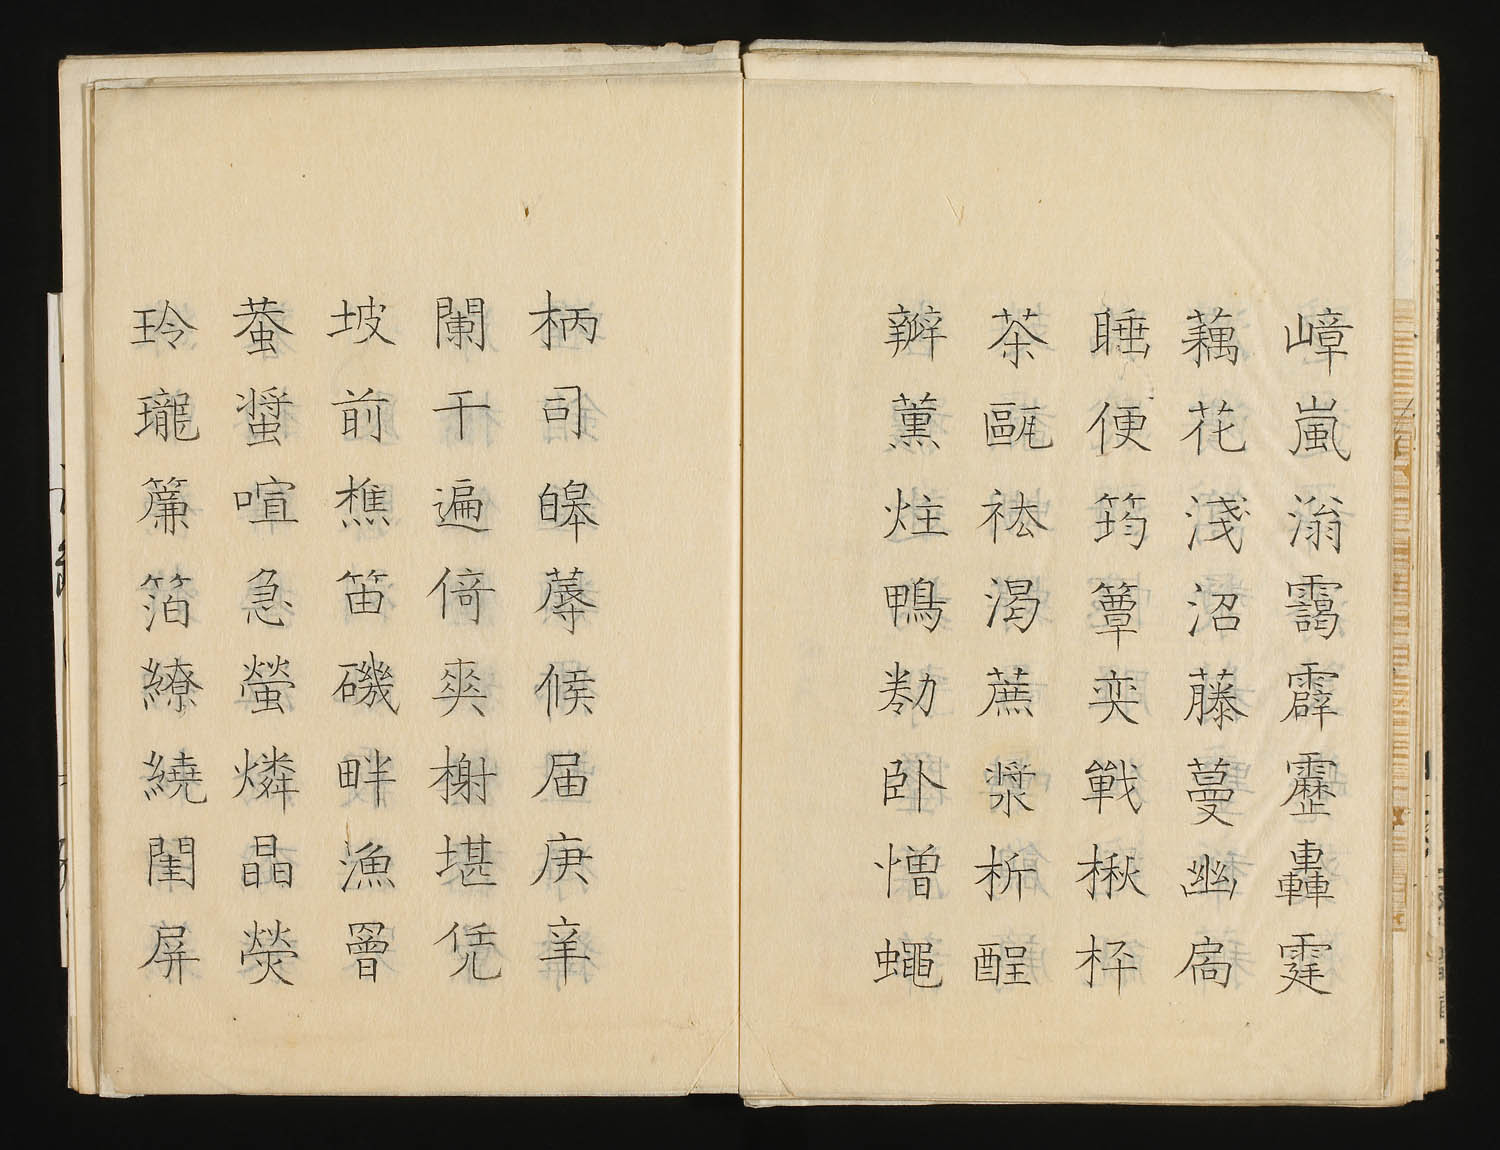 嶂嵐滃靄霹靂轟霆
藕花淺沼藤蔓幽扃
睡便筠簟奕戰楸枰
茶甌祛渴蔗漿析酲
辮薰炷鴨勌臥憎蠅
柄司皞蓐候届庚辛
闌干遍倚爽榭堪凭
坡前樵笛磯畔漁罾
蛬螿喧急螢燐晶熒
玲瓏簾箔繚繞閨屏